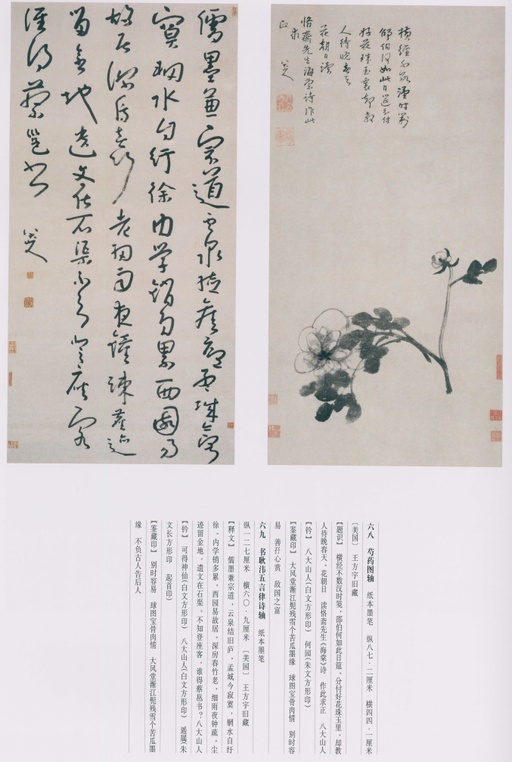 橫經不數漢時箋
邵伯何如此日筵分付
好花珠玉裏却教
人待晚春天
花朝日讀
悋齋先生海棠詩作此
求
正 八大山人
儒墨兼宗道雲泉結舊廬孟城今寂
寞輞水自紆徐內學銷多累西園易
故居深房春竹老細雨夜鐘疎塵迹
留金地遺文在石渠不知登座客
誰得蔡邕書 八大山人
六八 芍药图轴 纸本墨笔 纵八七·二厘米 横四四·一厘米
〔美国〕 王方宇旧藏
【题识】 横经不数汉时笺,邵伯何如此日筵,分付好花珠玉里,却教
人待晚春天。花朝日 读悋斋先生《海棠》诗 作此求正 八大山人
【钤】 八大山人(白文方形印) 何园(朱文方形印)
【鉴藏印】 大风堂渐江髡残雪个苦瓜墨缘 球图宝骨肉情 别时容
易 善孖心赏 故国之富
六九 书耿湋五言律诗轴 纸本墨笔
纵一二七厘米 横六〇·九厘米 〔美国〕 王方宇旧藏
【释文】 儒墨兼宗道,云泉结旧庐,孟城今寂寞,辋水自纡
徐,内学销多累,西园易故居,深房春竹老,细雨夜钟疏,尘
迹留金地,遗文在石渠,不知登座客,谁得蔡邕书?八大山人
【钤】 可得神仙(白文方形印) 八大山人(白文方形印) 遥属(朱
文长方形印) 起首印)
【鉴藏印】 别时容易 球图宝骨肉情 大风堂渐江髡残雪个苦瓜墨
缘 不负古人告后人